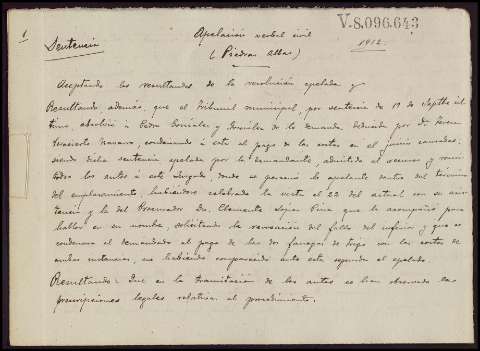 V.8.096.643
1
Sentencia
Apelación verbal civil
(Piedras Albas)
1912.
Aceptando los resultandos de la resolución apelada y
Resultando además, que el Tribunal municipal, por sentencia de 17 de Septbe úl
timo, absolvió a Pedro González y González de la demanda, deducida por D.
Navarro, condenando a este al pago de las costas en el juicio causadas;
siendo dicha sentencia apelada por la demandante, admitido el recurso y remi
tidos los autos a este Juzgado, donde se personó la apelante dentro del término
del emplazamiento, habiéndose celebrado la vista el 22 del actual con su asis
tencia y la del Procurador Dn. Clemente López que la acompañó para
hablar en su nombre, solicitando la revocación del fallo del inferior y que se
condenara al demandado al pago de las dos fanegas de trigo con las costas de
ambas instancias, no habiendo comparecido ante esta segunda el apelado.
Resultando: Que en la tramitación de los autos se han observado las
prescripciones legales relativas al procedimiento.